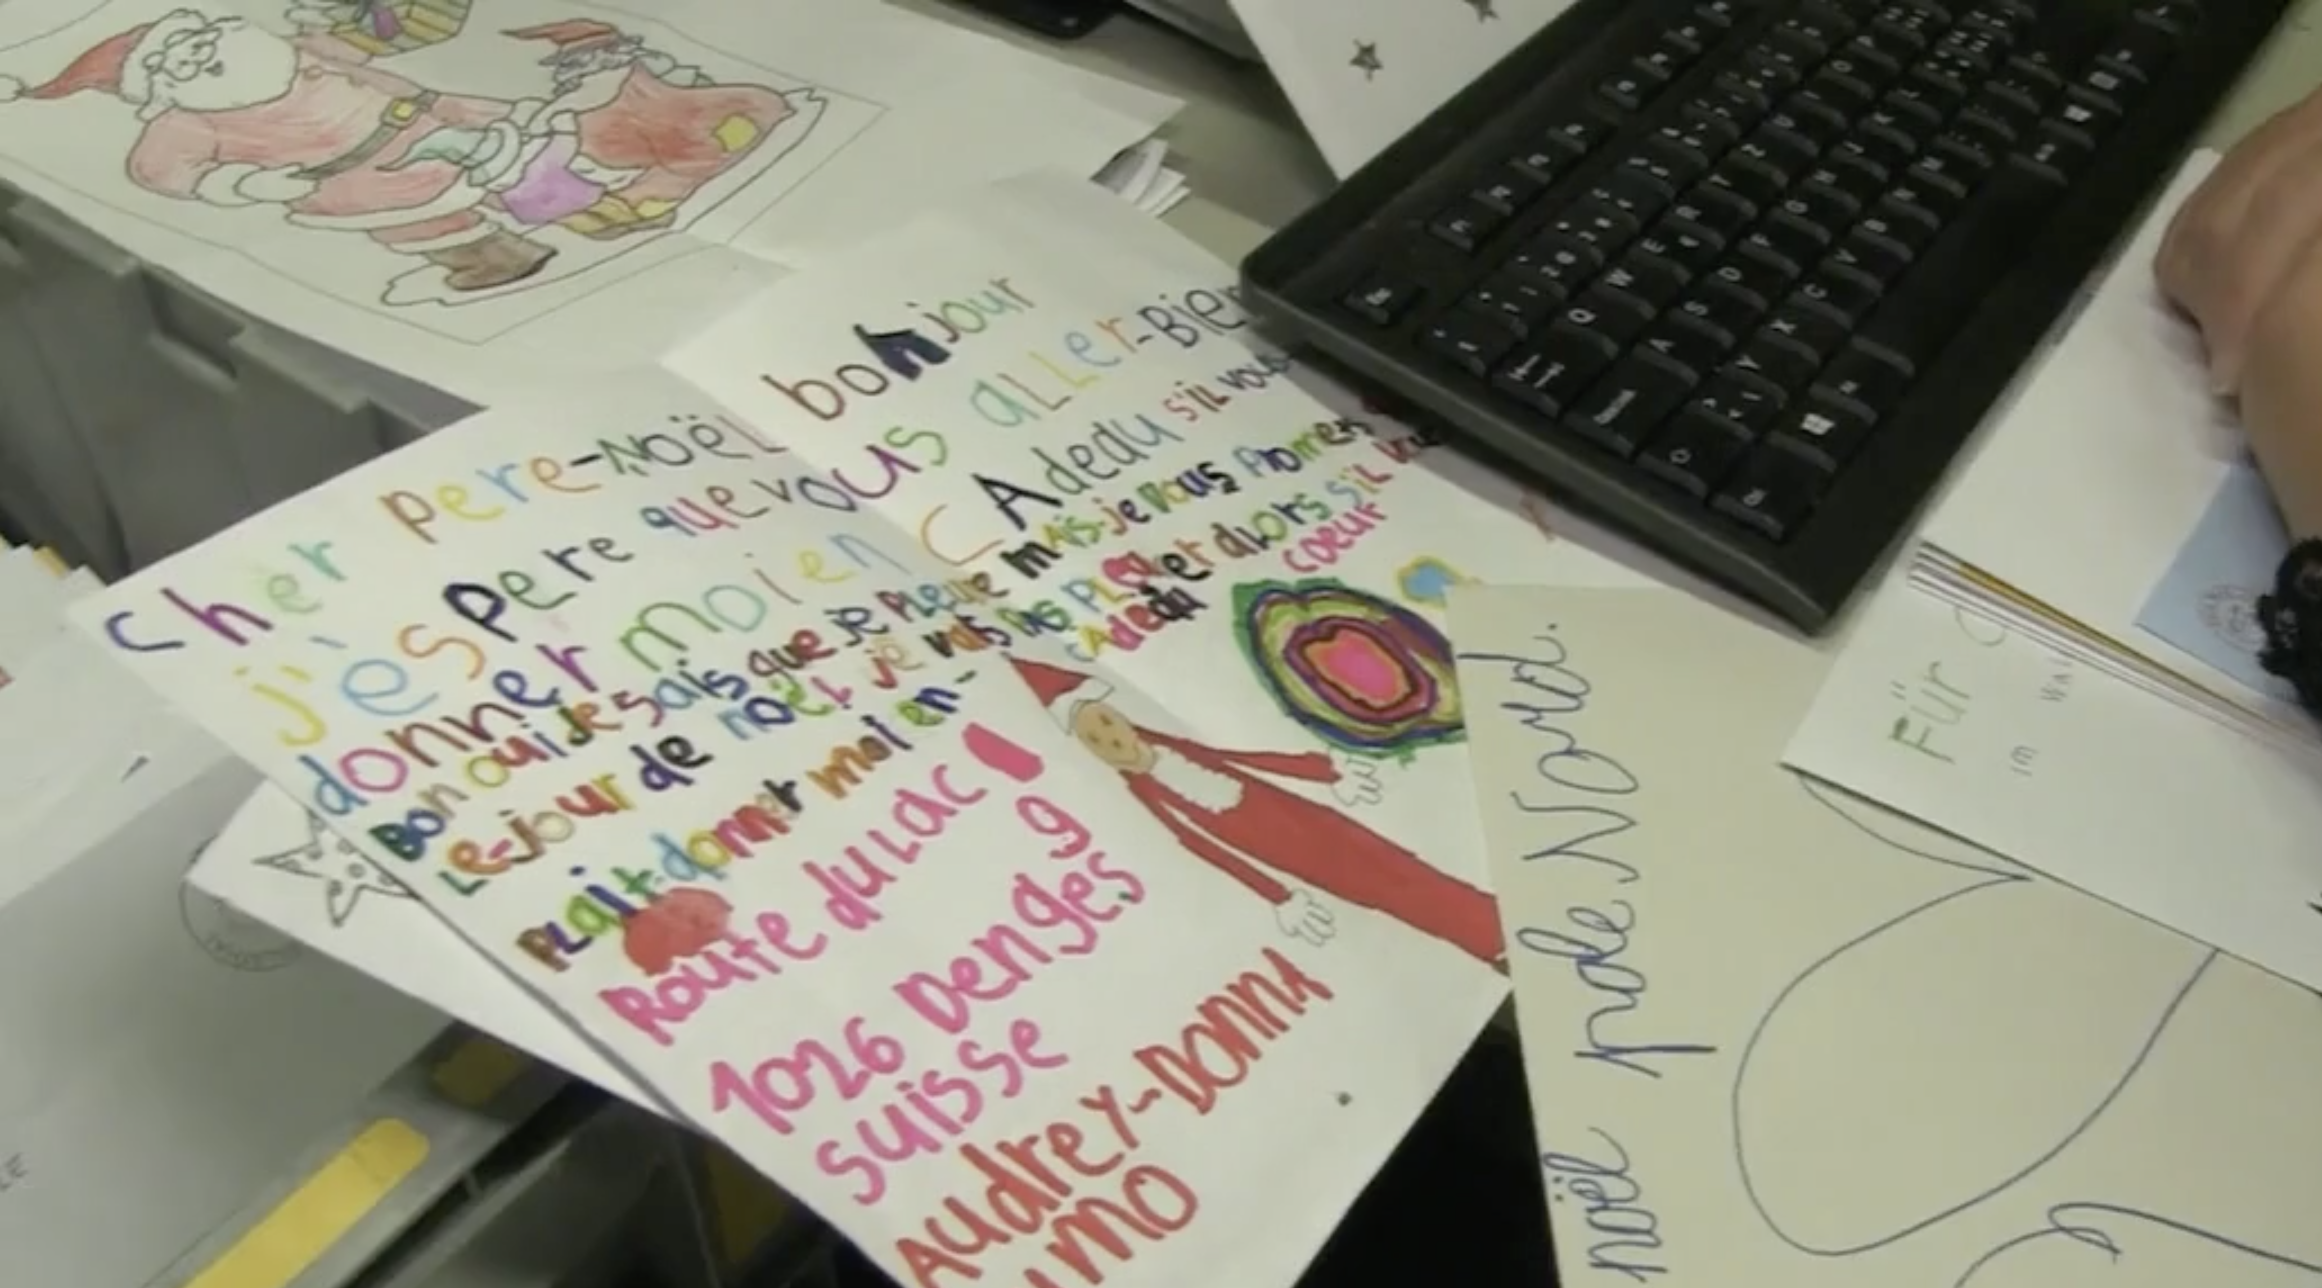 cher pere-NoëL bonjour
j'èspere que vous aLLer-Bien
donner moi en CAdedu s'iL vous
Bon oui je sais que je PLeure mais-je vous Promers
Le-jour de noëL je vais pas pLeurer aLors s'iL vous
pLait-donner moi en- cAdedu coeur
Route du Lac 1
9
1026 Denges
suisse
AudreY-DonnA
imo
noël pole Nord.
Für
im Wal